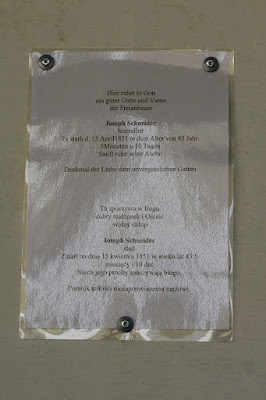 Hier ruhet in Gott
ein guter Gatte und Vater
der Freianbauer
Joseph Schneider
hierselbst
Er starb d. 15 April 1851 in dem Alter von 43 Jahr.
5 Monaten u 10 Tagen
Sanft ruhe seine Asche
Denkmal der Liebe dem unvergesslichen Garten
Tu spoczywa w Bogu
dobry małżonek i Ojciec
wolny chłop
Joseph Schneider
Zmarł on dnia 15 kwietnia 1851 w wieku lat 43 5
miesięcy i 10 dni
Niech jego prochy spoczywają błogo.
Pomnik miłości niezapomnianemu mężowi.